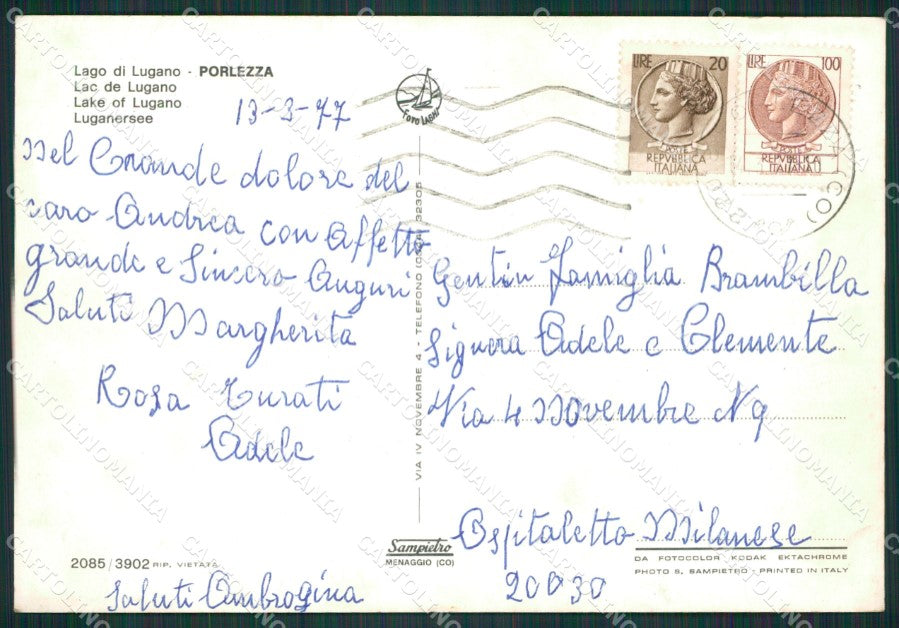 Lago di Lugano - PORLEZZA
Lac de Lugano
Lake of Lugano
Luganersee
13-3-77
FOTO LAGHI
LIRE 20
REPVBBLICA
ITALIANA
LIRE 100
REPVBBLICA
ITALIANA
(CO)
Nel Grande dolore del
caro Andrea con Affetto
grande e Sincero Auguri
Saluti Margherita
Rosa Turati
Adele
Gentin Famiglia Brambilla
Signora Adele e Clemente
Via 4 Novembre N 9
Ospitaletto Milanese
20030
VIA IV NOVEMBRE 4 - TELEFONO 32305
Sampietro
MENAGGIO (CO)
DA FOTOCOLOR KODAK EKTACHROME
PHOTO S. SAMPIETRO - PRINTED IN ITALY
2085/3902 RIP. VIETATA
Saluti Ambrogina
CARTOLINOMANIA